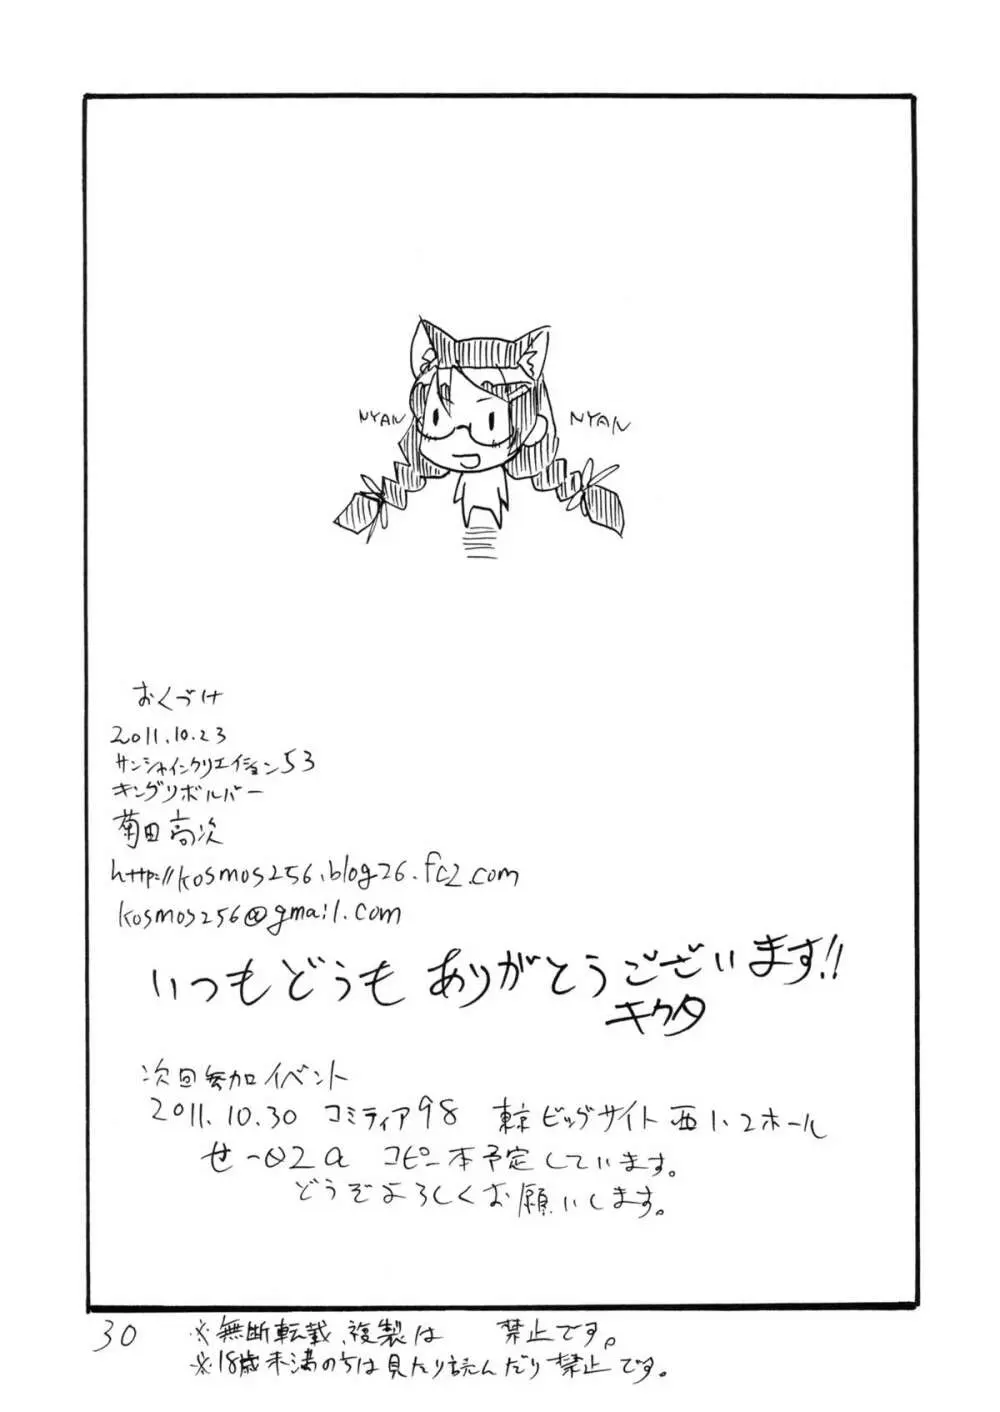 NYAN
NYAN
おくづけ
2011.10.23
サンシャインクリエイション53
キングリボルバー
菊田高次
http://kosmos256.blog26.fc2.com
kosmos256@gmail.com
いつもどうもありがとうございます!!
キクタ
次回参加イベント
2011.10.30 コミティア98 東京ビッグサイト西1・2ホール
せ-02a コピー本予定しています。
どうぞよろしくお願いします。
30
※無断転載、複製は 禁止です。
※18歳未満のちは見たり読んだり禁止です。